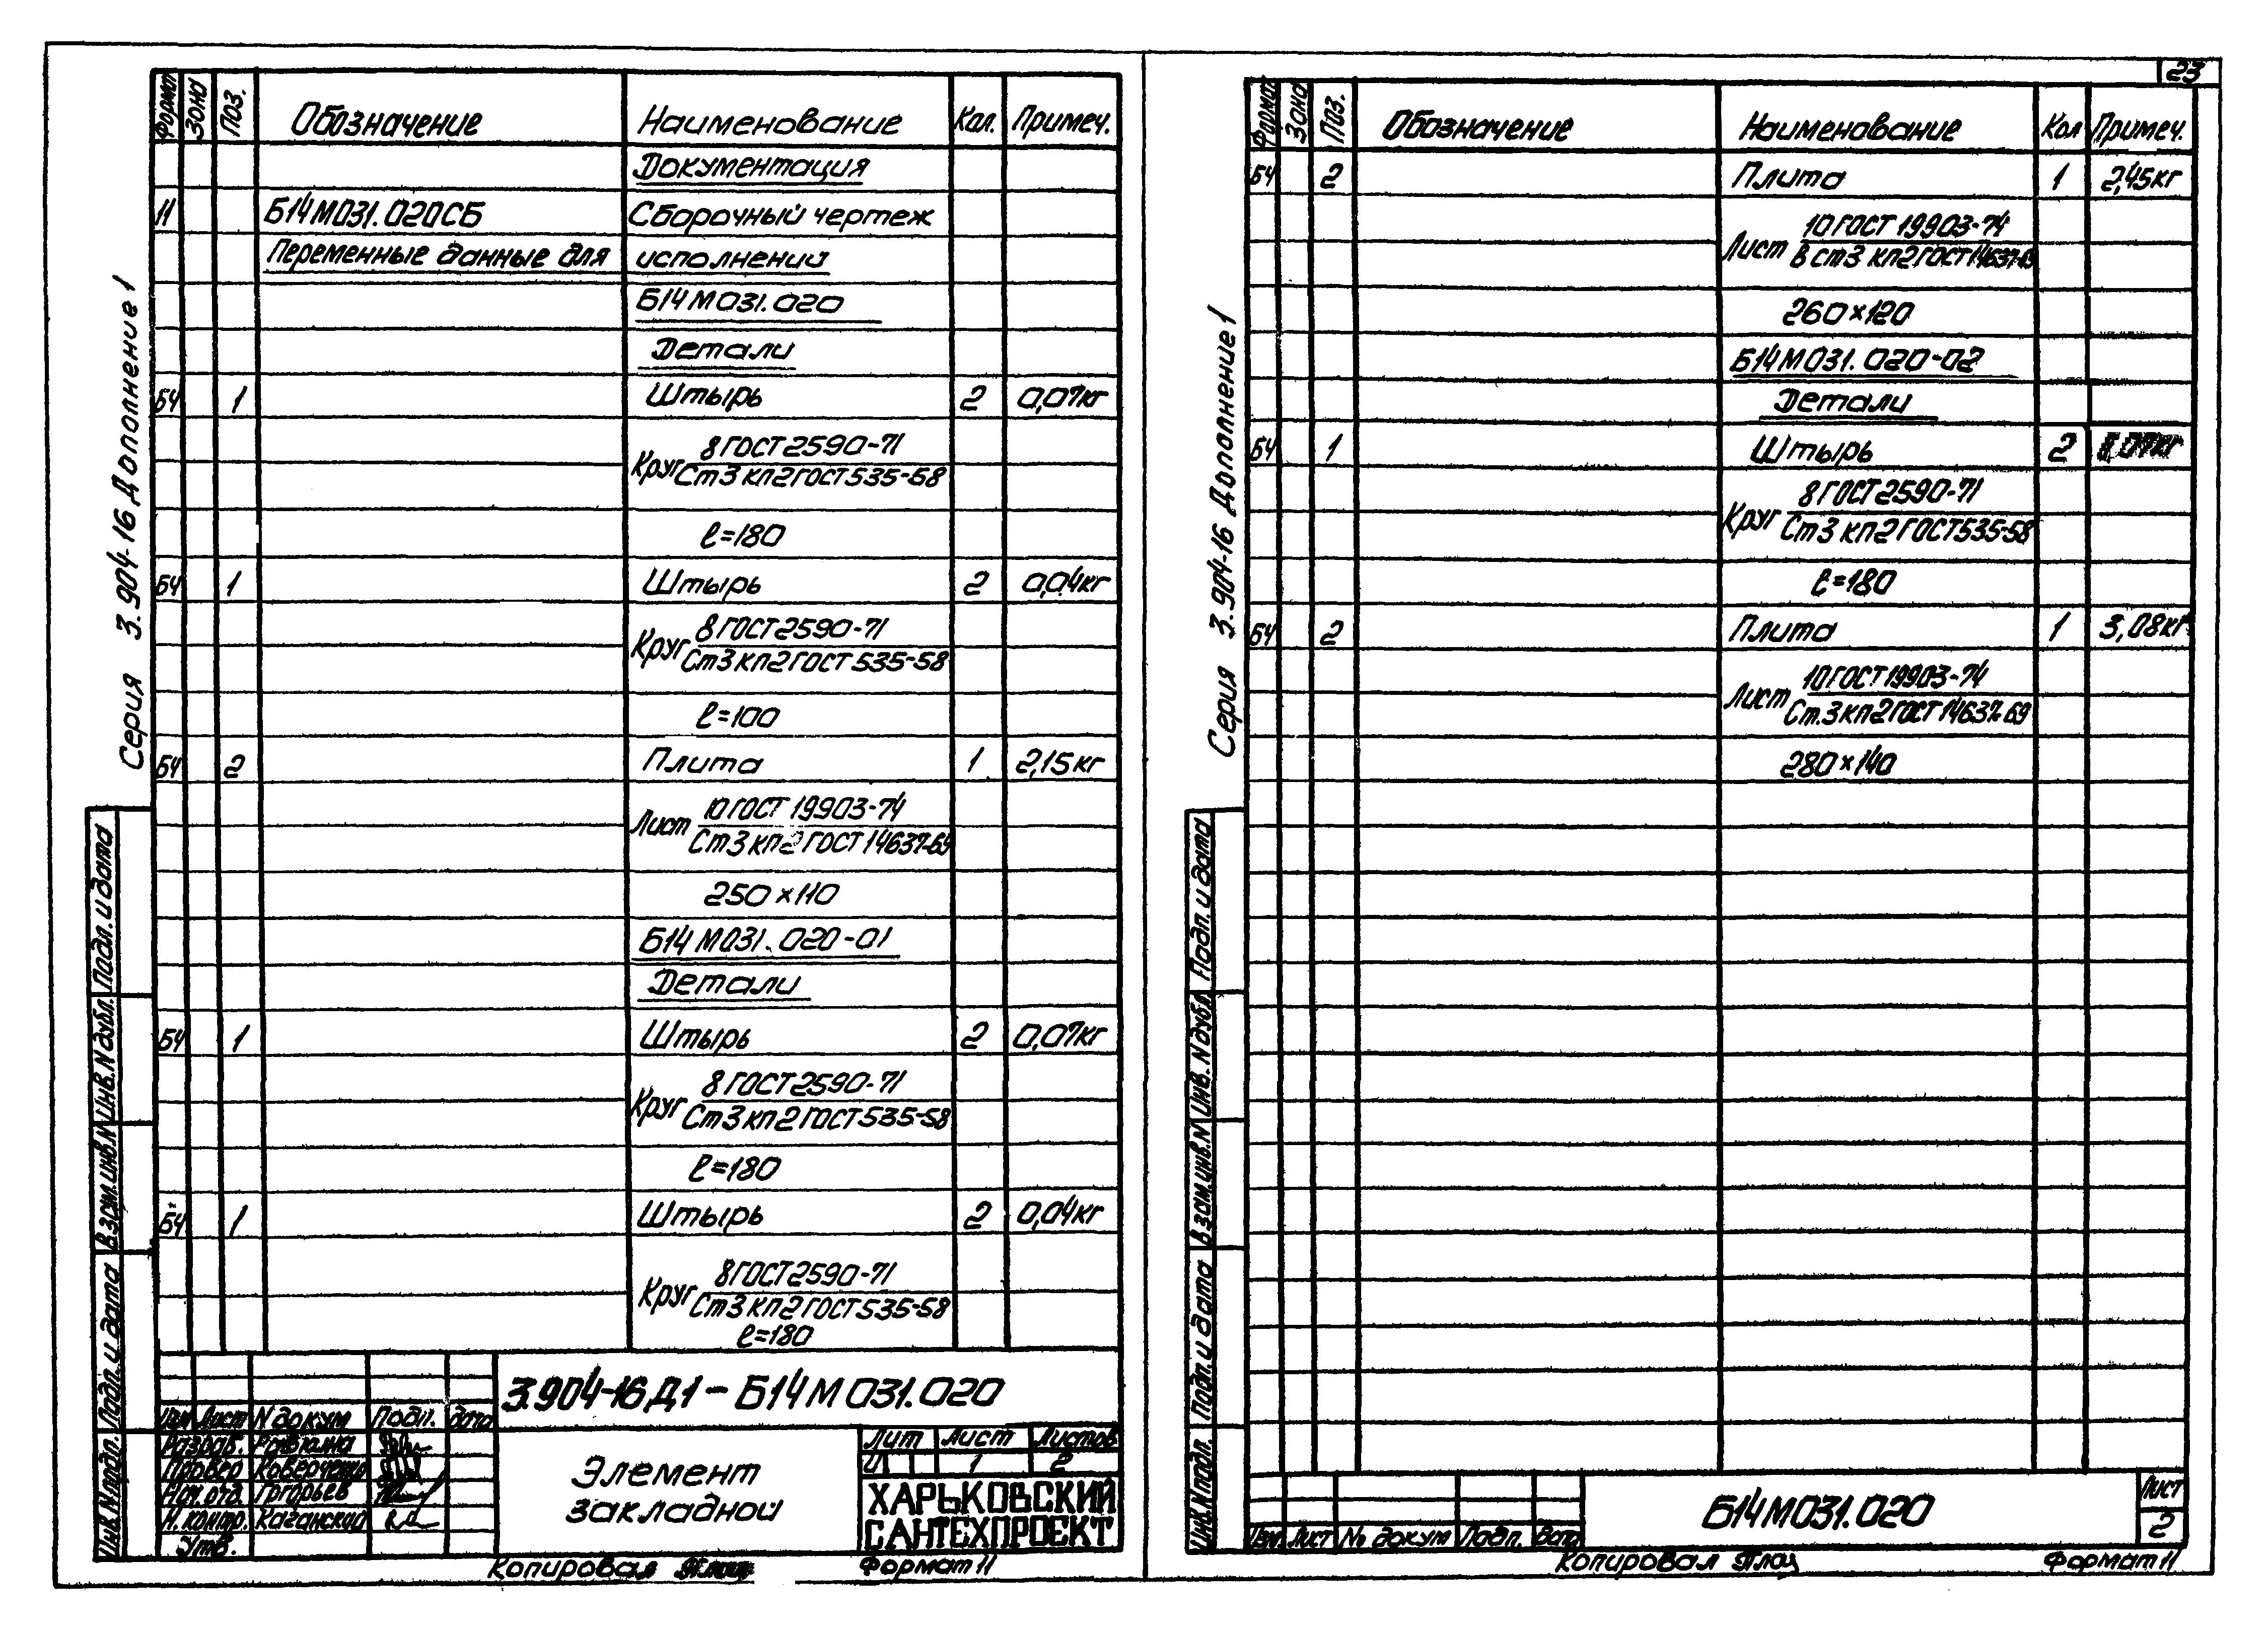 Серия 3.904-16 Дополнение 1
Формат Зона Поз. Обозначение Наименование Кол. Примеч.
Документация
11 Б14М031.020СБ Сборочный чертеж
Переменные данные для исполнений
Б14М031.020
Детали
БЧ 1 Штырь 2 0,07кг
8 ГОСТ 2590-71
Круг
Ст3 кп2 ГОСТ 535-58
ℓ=180
БЧ 1 Штырь 2 0,04кг
8 ГОСТ 2590-71
Круг
Ст3 кп2 ГОСТ 535-58
ℓ=100
БЧ 2 Плита 1 2,15кг
10 ГОСТ 19903-74
Лист
Ст3 кп2 ГОСТ 14637-69
250×110
Б14М031.020-01
Детали
БЧ 1 Штырь 2 0,07кг
8 ГОСТ 2590-71
Круг
Ст3 кп2 ГОСТ 535-58
ℓ=180
БЧ 1 Штырь 2 0,04кг
8 ГОСТ 2590-71
Круг
Ст3 кп2 ГОСТ 535-58
ℓ=180
Подп. и дата
Инв.N дубл.
Взам.инв.N
Подп. и дата
Инв.N подл.
3.904-16.Д1-Б14М031.020
Изм Лист N докум Подп. дата
Разраб.
Провер
Нач.отд. Григорьев
Н.контр. Каганский
Утв.
Элемент
закладной
Лит Лист Листов
И 1 2
ХАРЬКОВСКИЙ
САНТЕХПРОЕКТ
Копировал
Формат 11
23
Серия 3.904-16 Дополнение 1
Формат Зона Поз. Обозначение Наименование Кол Примеч.
БЧ 2 Плита 1 2,45кг
10 ГОСТ 19903-74
Лист
В ст3 кп2 ГОСТ 14637-69
260×120
Б14М031.020-02
Детали
БЧ 1 Штырь 2 0,07кг
8 ГОСТ 2590-71
Круг
Ст3 кп2 ГОСТ 535-58
ℓ=180
БЧ 2 Плита 1 3,08кг
10 ГОСТ 19903-74
Лист
Ст.3 кп2 ГОСТ 14637-69
280×140
Подп. и дата
Инв.N дубл.
Взам.инв.N
Подп. и дата
Инв.N подл.
Изм Лист № докум Подп.
Б14М031.020
Лист
2
Копировал
Формат 11